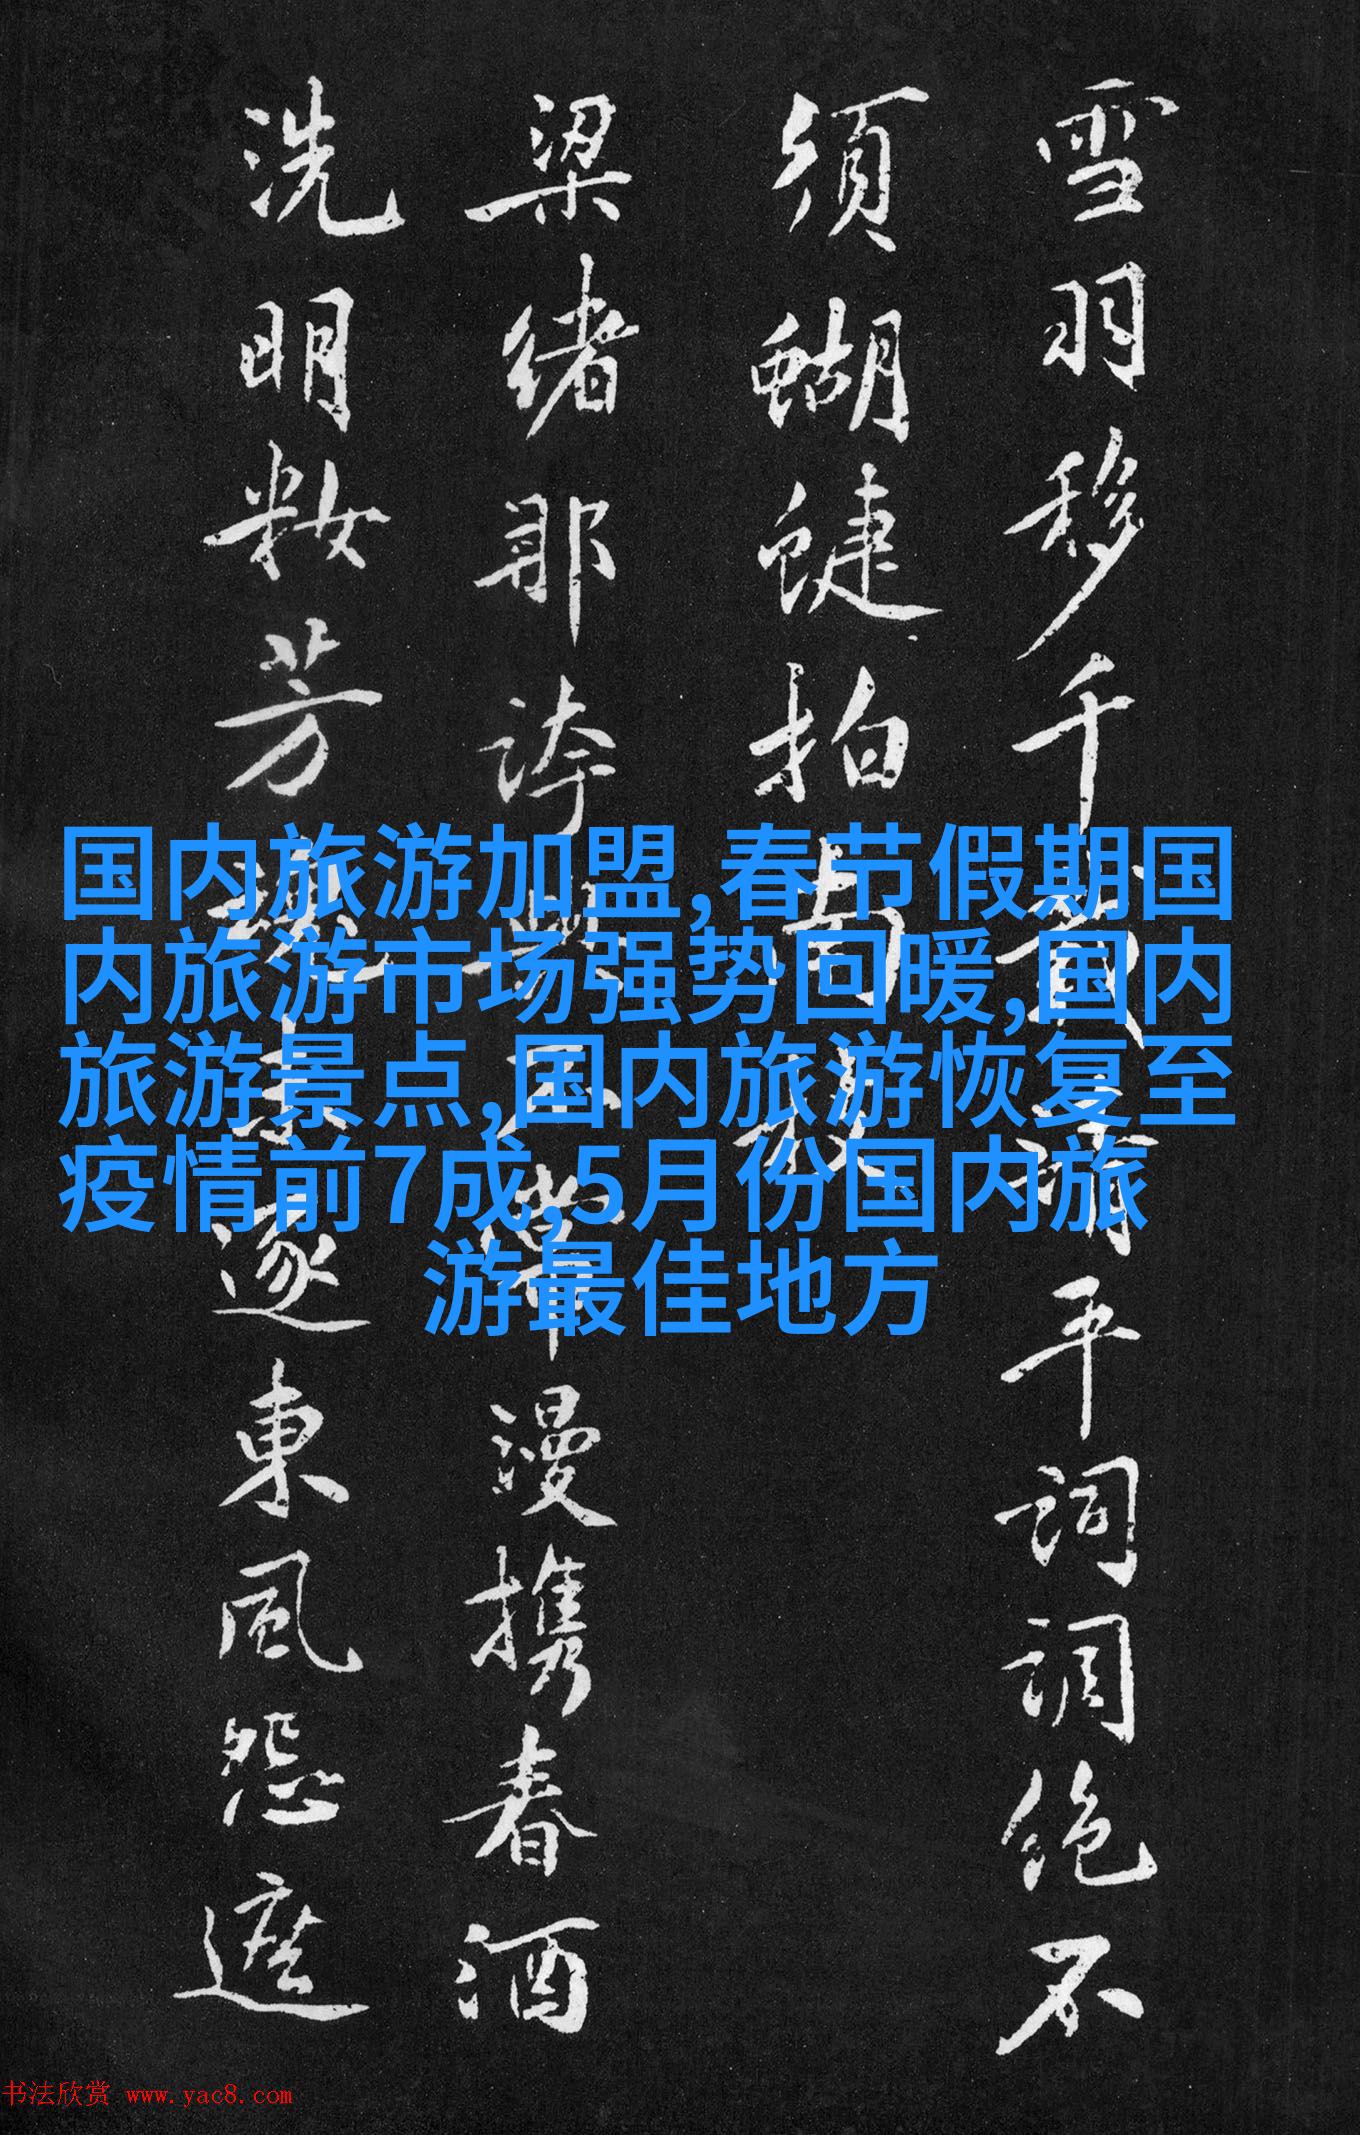 雪羽移千平詞調絶不
須蝴蝶拍
梁緒那誇漫携春酒
洗明籹芳東風怨遮
国内旅游加盟,春节假期国
内旅游市场强势回暖,国内
旅游景点,国内旅游恢复至
疫情前7成,5月份国内旅
游最佳地方
书法欣赏 www.yac8.com